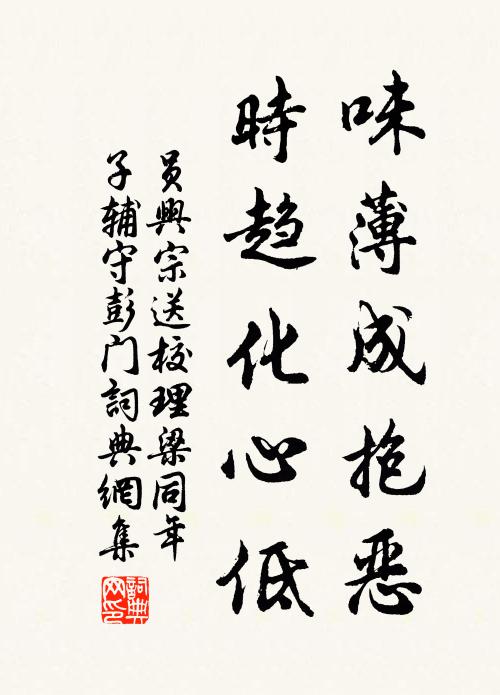 味薄成抱恶
時趋化心低
员興宗送校理梁同年
子辅守彭门詞典網集
詞典网印